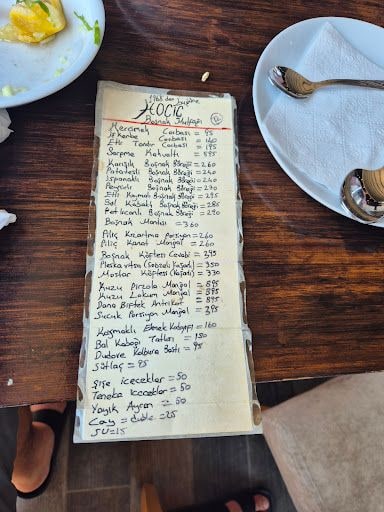 1968 den bugüne
HOCİÇ
Boşnak Mutfağı
Mercimek Çorbası = 95
İşkembe Çorbası = 160
Etli Tandır Çorbası = 195
Serpme Kahvaltı = 595
Karışık Boşnak Böreği = 260
Patatesli Boşnak Böreği = 240
Ispanaklı Boşnak Böreği = 240
Peynirli Boşnak Böreği = 270
Etli Kıymalı Boşnak Böreği = 295
Bal Kabaklı Boşnak Böreği = 285
Patlıcanlı Boşnak Böreği = 290
Boşnak Mantısı = 360
Piliç Kızartma Porsiyon = 260
Piliç Kanat Mangal = 260
Boşnak Köftesi Cevabi = 395
Pleskavitsa (Sebzeli Kaşarlı) = 350
Mostar Köftesi (Kaşarlı) = 330
Kuzu Pirzola Mangal = 595
Kuzu Lokum Mangal = 595
Dana Biftek Antrikot = 595
Sucuk Porsiyon Mangal = 395
Kaymaklı Ekmek Kadayıfı = 160
Bal Kabağı Tatlısı = 150
Dudove Kalbura Bastı = 95
Sütlaç = 95
Şişe İcecekler = 50
Teneke İcecekler = 50
Yayık Ayran = 50
Çay = duble = 25
SU = 15